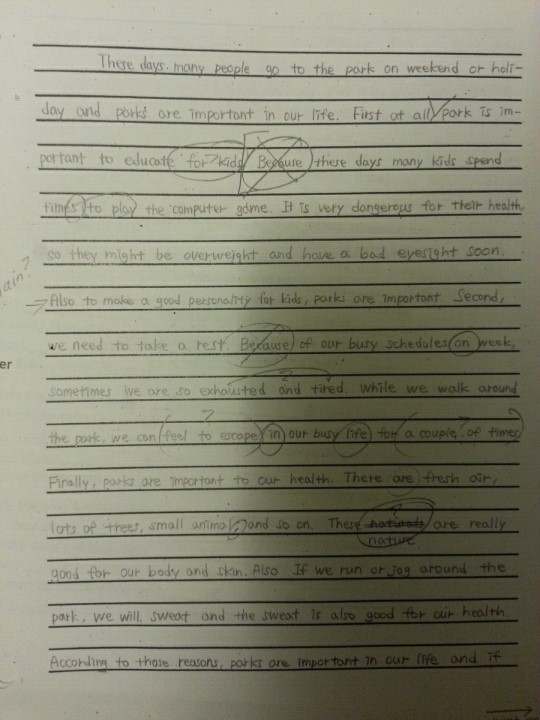 These days. many people go to the park on weekend or holi-
day and parks are important in our life. First at all park is im-
portant to educate for kids Because these days many kids spend
times to play the computer game. It is very dangerous for their health
so they might be overweight and have a bad eyesight soon.
ain?
Also to make a good personality for kids, parks are important. Second,
we need to take a rest. Because of our busy schedules on week,
er
sometimes we are so exhausted and tired. While we walk around
the park, we can feel to escape in our busy life for a couple of times
Finally, parks are important to our health. There are fresh air,
lots of trees, small animals and so on. These naturals are really
nature
good for our body and skin. Also If we run or jog around the
park, we will sweat and the sweat is also good for our health.
According to those reasons, parks are important in our life and if